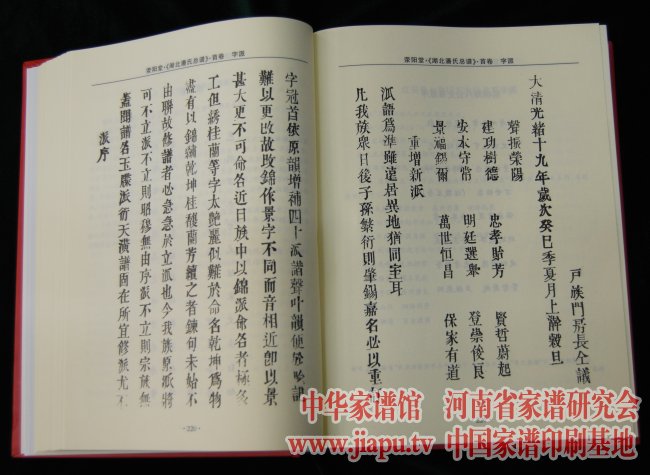 荥阳堂·《湖北潘氏总谱》·首卷 字派
派序
蓋聞譜名玉牒派衍天潢譜固在所宜修派尤不
可不立派不立則昭穆無由序派不立則宗族無
由聯故修譜者必急急於立派也今我族原派將
盡有以錦繡乾坤桂馥蘭芳續之者鍊句未始不
工但綉桂蘭等字太艷麗似難於命名乾坤爲物
甚大更不可命名近日族中以錦派命名者極多
難以更改故改錦作景字不同而音相近即以景
字冠首依原韻增補四十派譜聲叶韻便於吟誦
·220·
荥阳堂·《湖北潘氏总谱》·首卷 字派
凡我族衆日後子孫繁衍則肇錫嘉名必以重
派語爲準雖遠居異地猶同室耳
重增新派
景福錫爾 萬世恒昌 保家有道
安本守常 明廷選舉 登崇後良
建功樹德 忠孝貽芳 賢哲蔚起
聲振榮陽
大清光緒十九年歲次癸巳季夏月上澣穀旦
戶族門房長仝議
中华家谱馆 河南省家谱研究会
www.jiapu.tv 中国家谱印刷基地